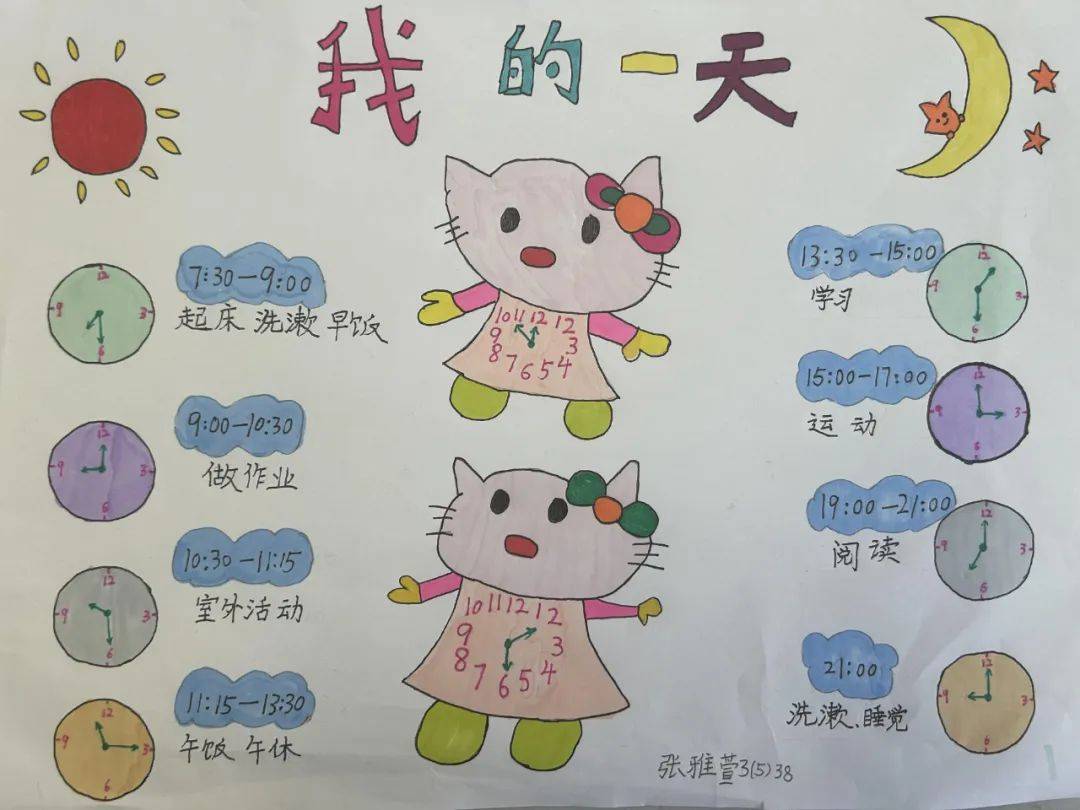 我的一天
12
9 3
6
7:30—9:00
起床 洗漱 早饭
12
9 3
6
9:00—10:30
做作业
12
9 3
6
10:30—11:15
室外活动
12
9 3
6
11:15—13:30
午饭 午休
10 11 12 1 2
9 3
8 7 6 5 4
10 11 12 1 2
9 3
8 7 6 5 4
13:30—15:00
学习
12
9 3
6
15:00—17:00
运动
12
9 3
6
19:00—21:00
阅读
12
9 3
6
21:00
洗漱、睡觉
12
9 3
6
张雅萱3(5)38